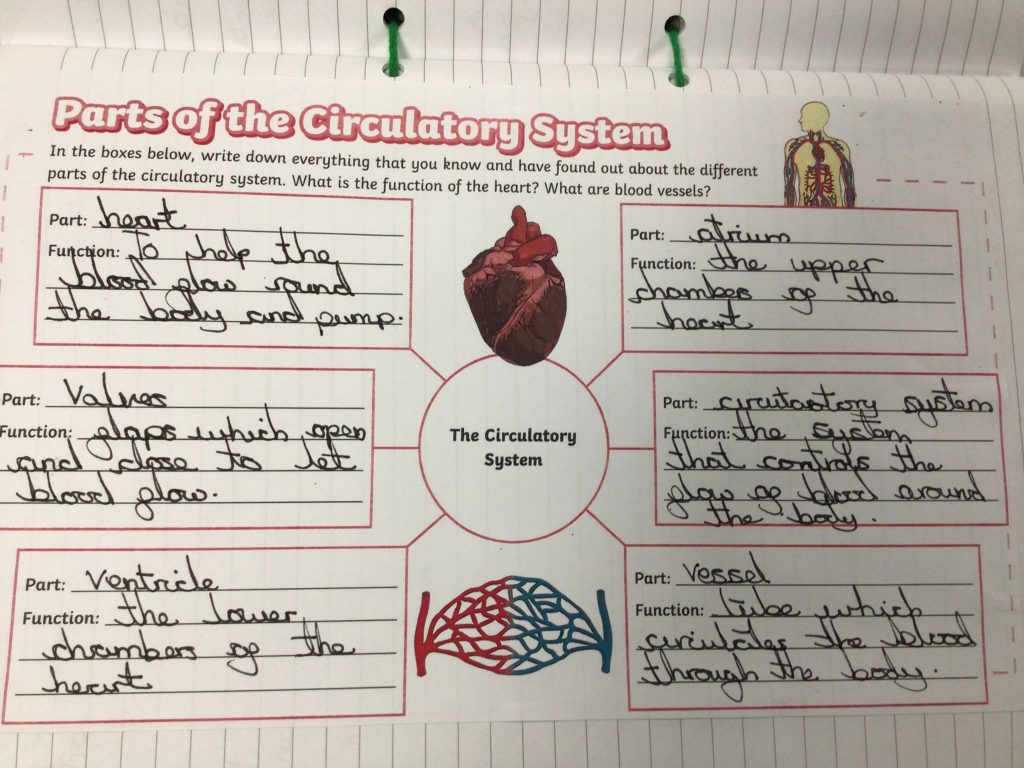 Parts of the Circulatory System
In the boxes below, write down everything that you know and have found out about the different
parts of the circulatory system. What is the function of the heart? What are blood vessels?
Part: heart
Function: To help the
blood flow round
the body and pump.
Part: atrium
Function: the upper
chambers of the
heart
Part: Valves
Function: flaps which open
and close to let
blood flow.
The Circulatory
System
Part: circutastory system
Function: the system
that controls the
flow of blood around
the body.
Part: Ventricle
Function: the lower
chambers of the
heart
Part: Vessel
Function: tube which
circulates the blood
through the body.